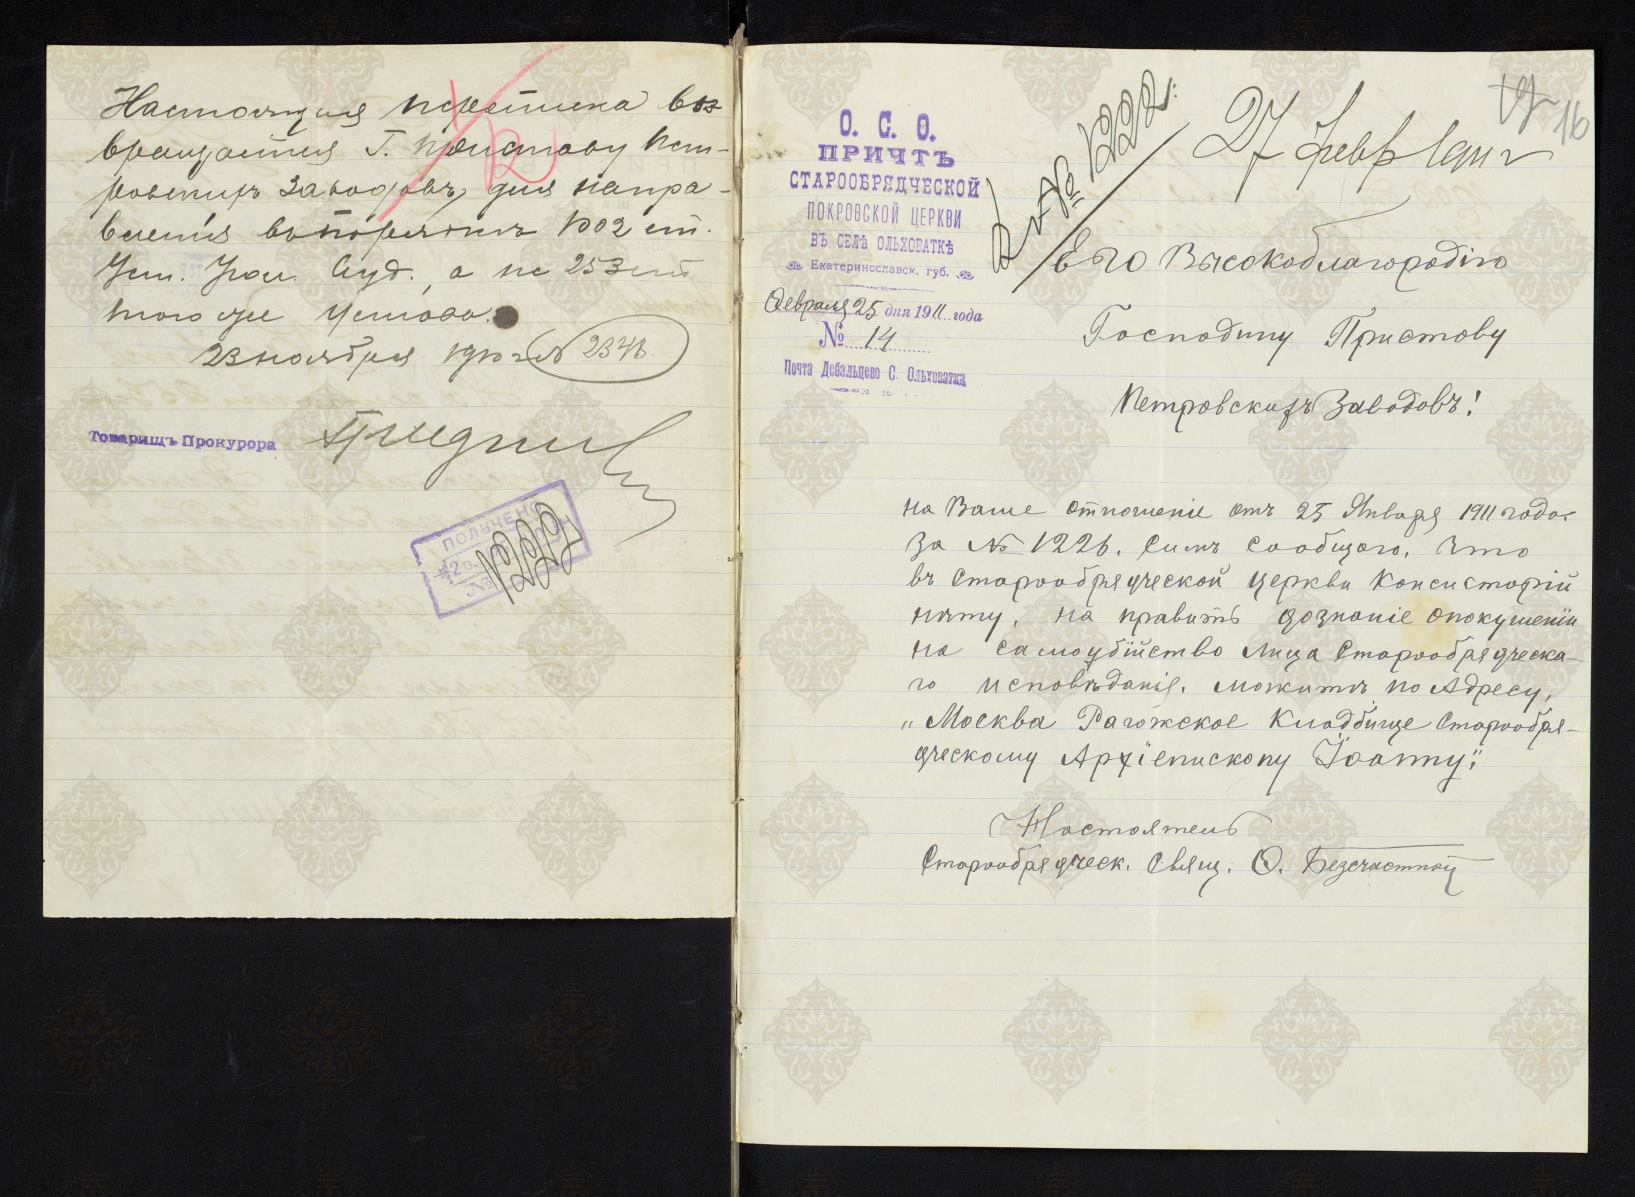 Настоящая переписка воз-
вращается Г. Приставу Пет-
ровских Заводовъ, для напра-
вления въ порядкѣ 1002 ст.
Уст. Угол. Суд., а не 253 ст
того же Устава.
23 ноября 1910 г. № 2348.
Товарищъ Прокурора
ПОЛУЧЕНО
№ 1222
16
27 Февр 1911 г
№ 1222.
О. С. О.
ПРИЧТЪ
СТАРООБРЯДЧЕСКОЙ
ПОКРОВСКОЙ ЦЕРКВИ
ВЪ СЕЛѢ ОЛЬХОВАТКѢ
Екатеринославск. губ.
Февраля 25 дня 1911 года
№ 14
Почта Дебальцево С. Ольховатка
Его Высокоблагородiю
Господину Приставу
Петровскихъ Заводовъ!
на Ваше отношенiе отъ 25 Января 1911 года.
за № 1226. Симъ сообщаю, что
въ Старообрядческой церкви Консисторiй
нѣту, на править дознанiе опокушенiи
на самоубiйство Лица Старообрядческа-
го исповѣданiя. можитъ по Адресу,
„Москва Рагожское Кладбище Старообря-
дческому Архiепископу Iоанну".
Настоятель
Старообрядческ. Свящ. Ѳ. Безсчастной